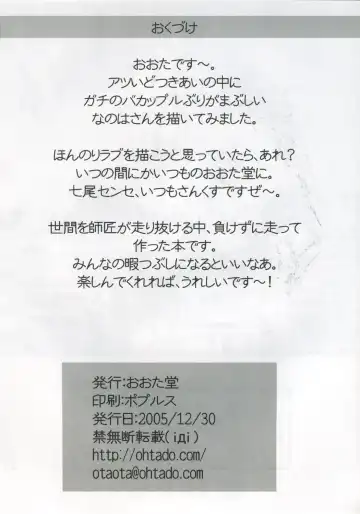 おくづけ
おおたです～。
アツいどつきあいの中に
ガチのバカップルぶりがまぶしい
なのはさんを描いてみました。
ほんのりラブを描こうと思っていたら、あれ？
いつの間にかいつものおおた堂に。
七尾センセ、いつもさんくすですぜ～。
世間を師匠が走り抜ける中、負けずに走って
作った本です。
みんなの暇つぶしになるといいなあ。
楽しんでくれれば、うれしいです～！
発行：おおた堂
印刷：ポプルス
発行日：2005/12/30
禁無断転載(iдi)
http://ohtado.com/
otaota@ohtado.com